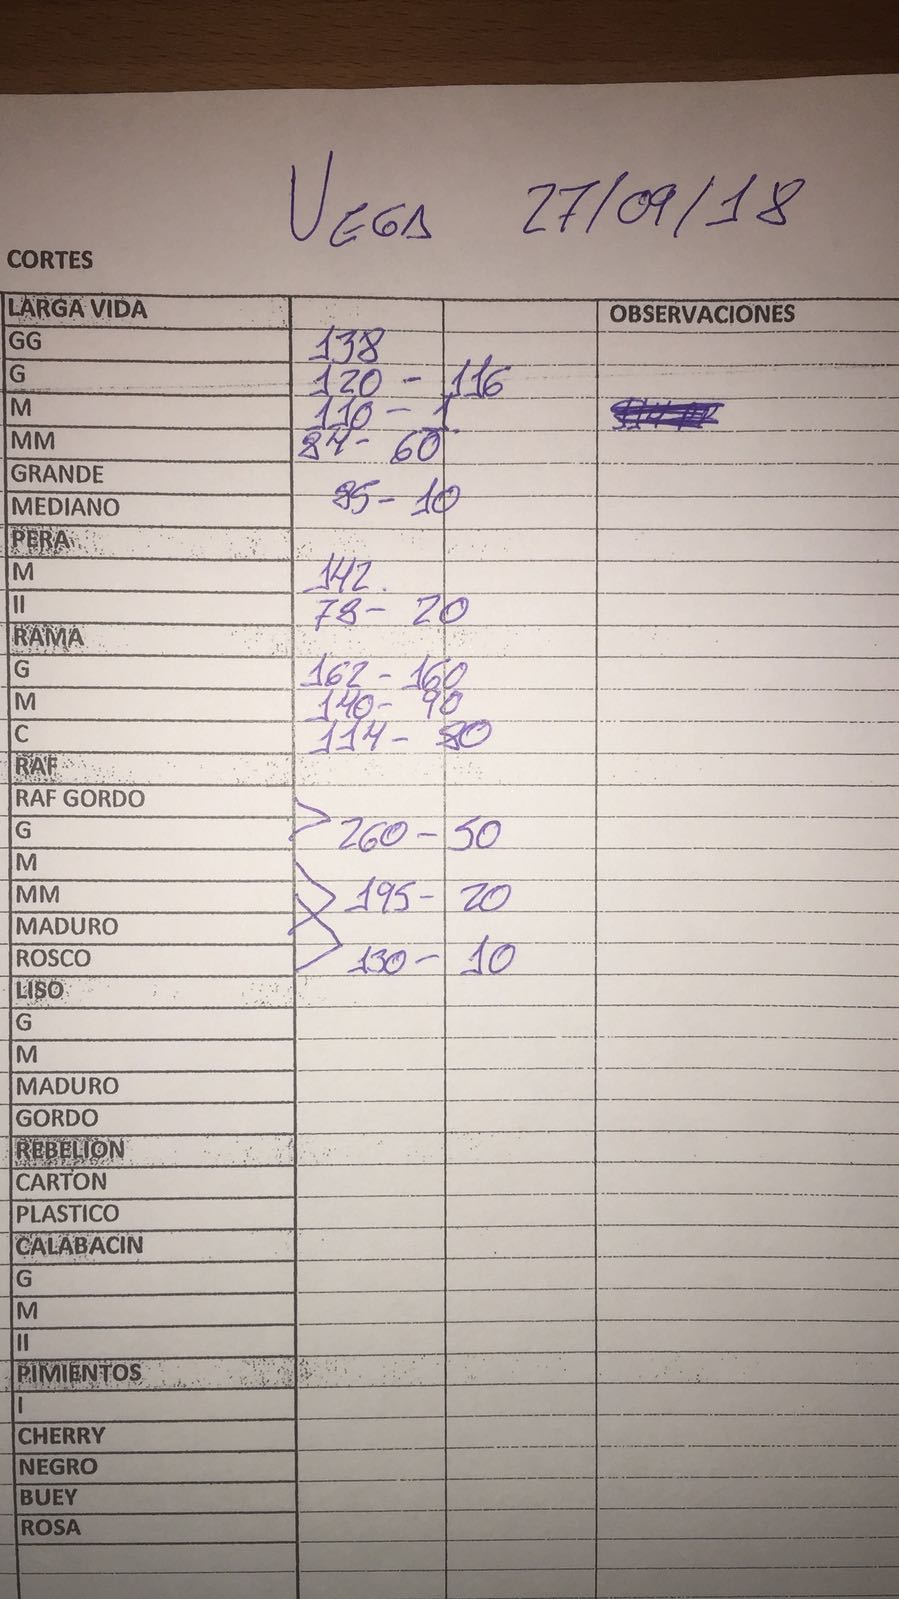 VEGA 27/09/18
CORTES
LARGA VIDA OBSERVACIONES
GG 138
G 120 - 116
M 110 - 1
MM 84 - 60
GRANDE
85 - 10
MEDIANO
PERA
M 142.
II 78 - 20
RAMA
G 162 - 160
M 140 - 90
C 114 - 80
RAF
RAF GORDO
G 260 - 50
M
MM 195 - 20
MADURO
ROSCO 130 - 10
LISO
G
M
MADURO
GORDO
REBELION
CARTON
PLASTICO
CALABACIN
G
M
II
PIMIENTOS
I
CHERRY
NEGRO
BUEY
ROSA